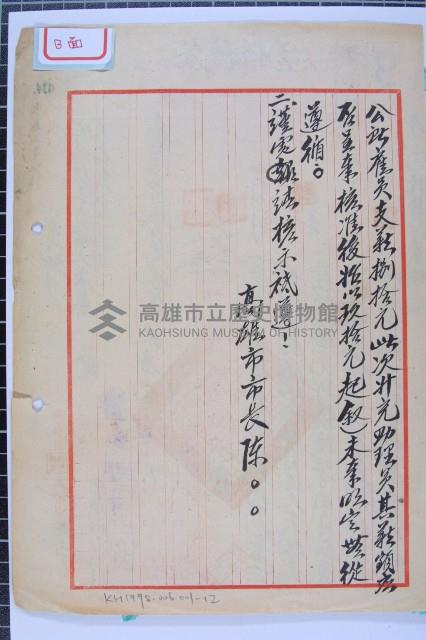 B面
公訖雇員支薪捌拾元此次升充助理員其薪額應
否呈奉核准後始以玖拾元起敘未奉明定無從
遵循。
二、謹電請核示祗遵！
高雄市市長陳○○
高雄市立歷史博物館
KAOHSIUNG MUSEUM OF HISTORY
KH1998.006.001-12